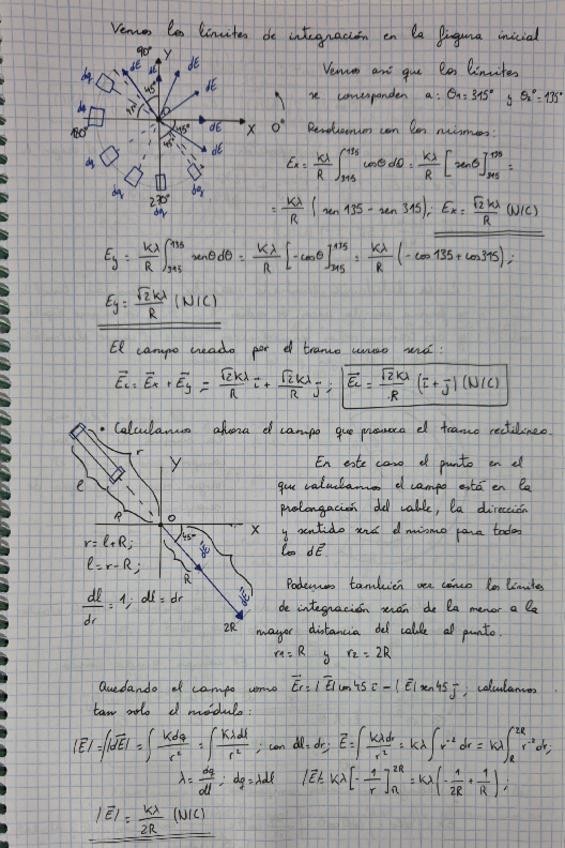 Vemos los límites de integración en la figura inicial
90° Y
dq dE dE
dE
45°
Vemos así que los límites
se corresponden a: θ1=315° y θ2=135°
dq
180° X 0°
dE
45° 45°
Resolvemos con los mismos:
dq dq dq
270°
dq
Ex = Kλ/R ∫₃₁₅¹³⁵ cosθdθ = Kλ/R [senθ]₃₁₅¹³⁵ =
= Kλ/R (sen 135 - sen 315); Ex = √2Kλ/R (N/C)
Ey = Kλ/R ∫₃₁₅¹³⁵ senθdθ = Kλ/R [-cosθ]₃₁₅¹³⁵ = Kλ/R (-cos 135 + cos 315);
Ey = √2Kλ/R (N/C)
El campo creado por el tramo curvo será:
E⃗c = E⃗x + E⃗y = √2Kλ/R i⃗ + √2Kλ/R j⃗; E⃗c = √2Kλ/R (i⃗ + j⃗) (N/C)
• Calculamos ahora el campo que provoca el tramo rectilíneo.
r Y
l
R O X
En este caso el punto en el
que calculamos el campo está en la
prolongación del cable, la dirección
y sentido será el mismo para todos
los dE⃗
45° dE⃗
R dE⃗
2R
r = l+R;
l = r-R;
dl/dr = 1; dl = dr
Podemos también ver cómo los límites
de integración serán de la menor a la
mayor distancia del cable al punto.
r1 = R y r2 = 2R
Quedando el campo como E⃗r = |E⃗| cos 45 i⃗ - |E⃗| sen 45 j⃗, calculamos
tan solo el módulo:
|E⃗| = ∫|dE⃗| = ∫ Kdq/r² = ∫ Kλdl/r²; con dl = dr; E⃗ = ∫ Kλdr/r² = Kλ ∫ r⁻² dr = Kλ ∫ᴿ²ᴿ r⁻² dr;
λ = dq/dl; dq = λdl |E⃗| = Kλ [-1/r]ᴿ²ᴿ = Kλ (-1/2R + 1/R);
|E⃗| = Kλ/2R (N/C)